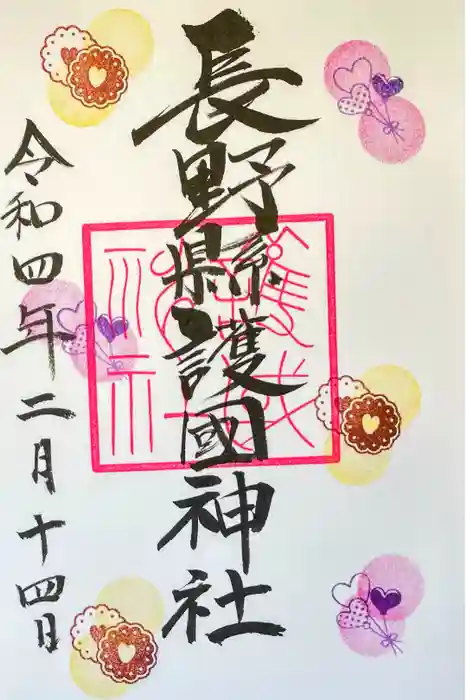 長野縣護國神社
令和四年二月十四日